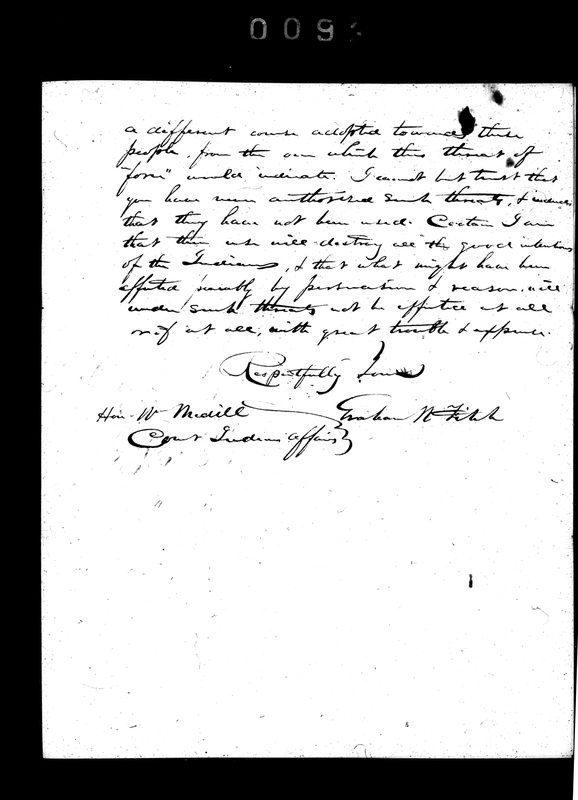 009
a different course adopted towards these
people, from the one which this threat of
"force" would indicate. I cannot but trust that
you have never authorised such threats, &
that they have not been used. Certain I am
that their use will destroy all the good intentions
of the Indians, & that what might have been
effected by persuasion & reason, will
under such threats not be effected at all
or if at all, with great trouble & expense.
Respectfully Yours
Hon. W Medill Graham N Fitch
Com Indian Affairs